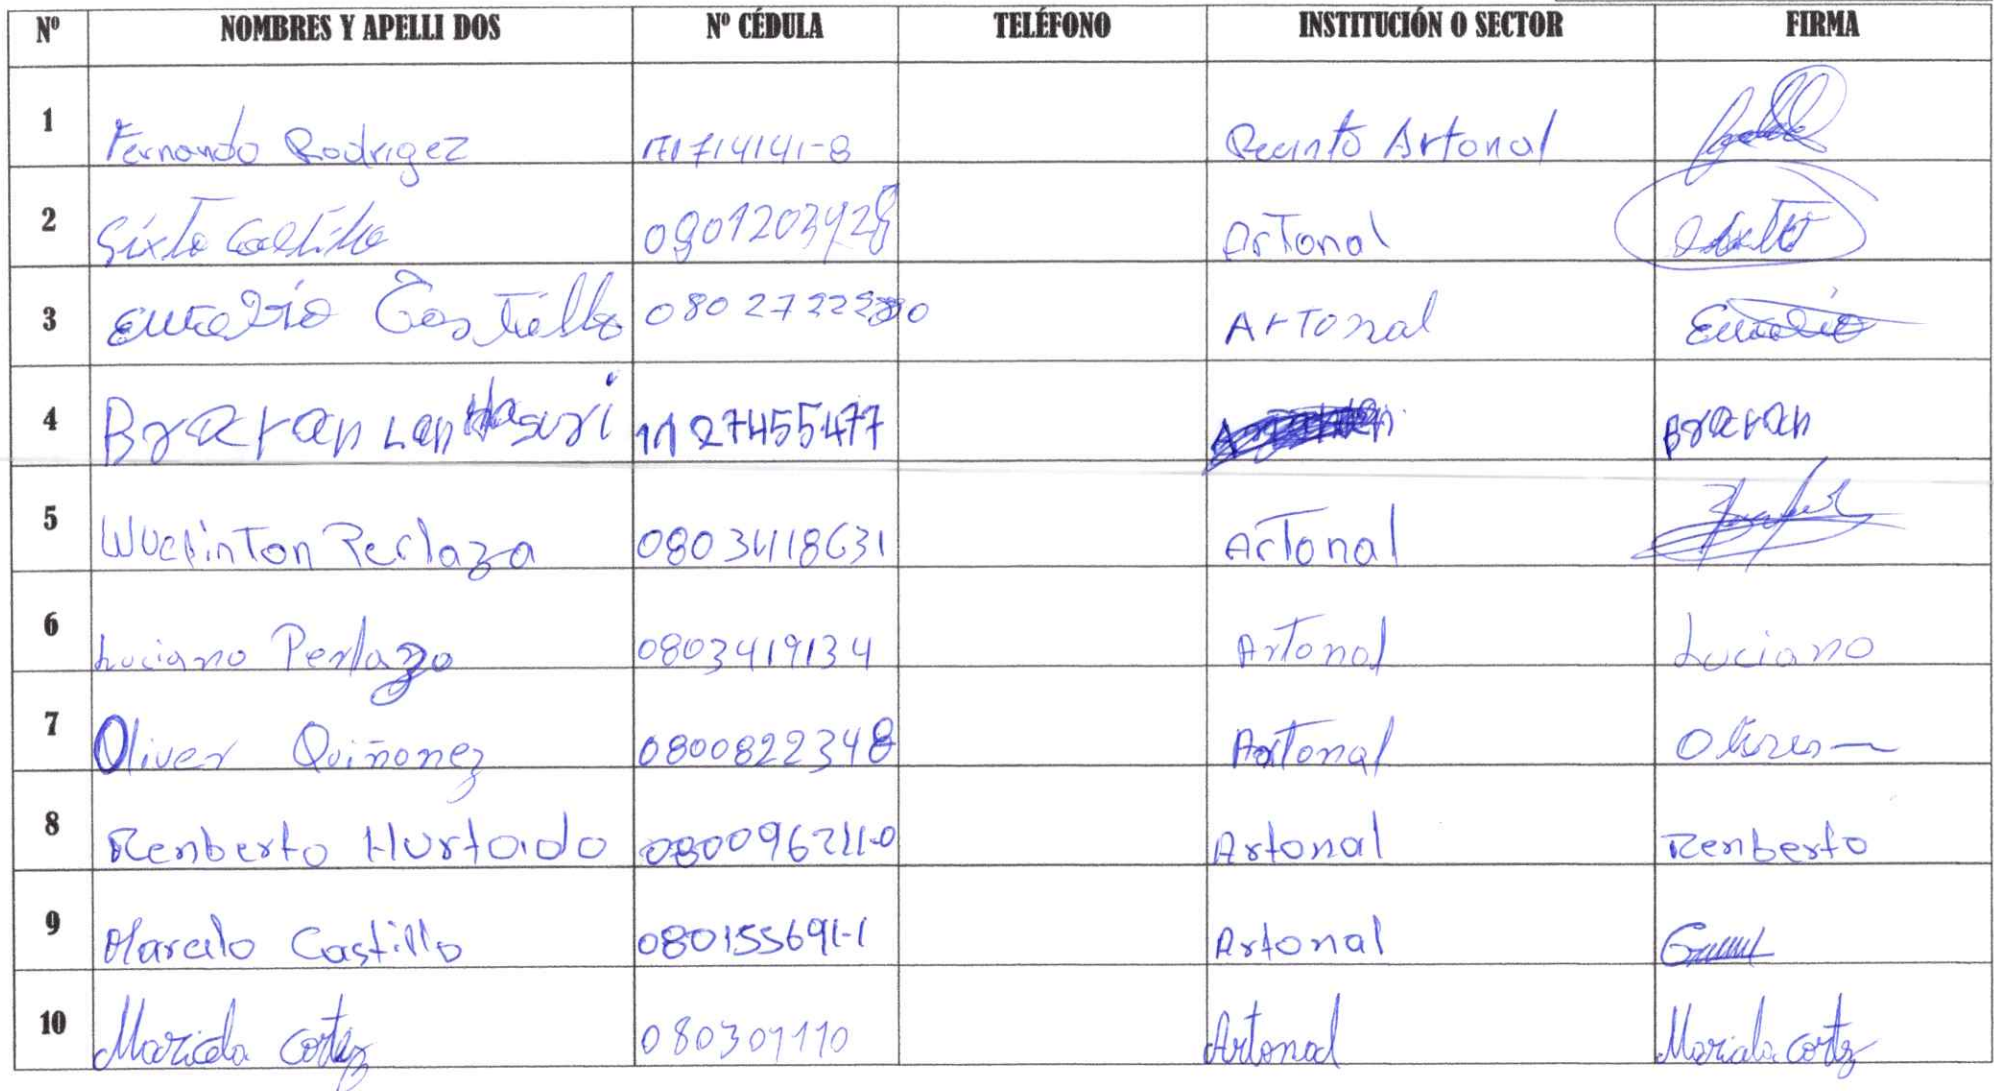 Nº NOMBRES Y APELLI DOS Nº CÉDULA TELÉFONO INSTITUCIÓN O SECTOR FIRMA
1 Fernando Rodrigez 171714141-8 Recinto Artonal
2 Sixto Castillo 0801203928 Artonal
3 Castillo Artonal
4 1127455477
5 Wuelinton Perlaza 0803418631 Artonal
6 Luciano Perlazo 0803419134 Artonal Luciano
7 Oliver Quiñonez 0800822348 Artonal
8 Renberto Hurtado 080096211-0 Artonal Renberto
9 Marcelo Castillo 080155691-1 Artonal
10 Mariela Cortez 080301110 Artonal Mariela Cortez